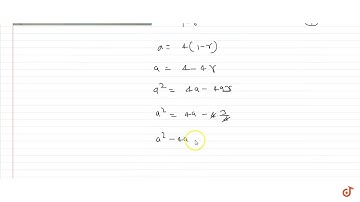 a = 4(1-r)
a = 4-4r
a² = 4a - 4ar
a² = 4a - 4 3/4
a² - 4a